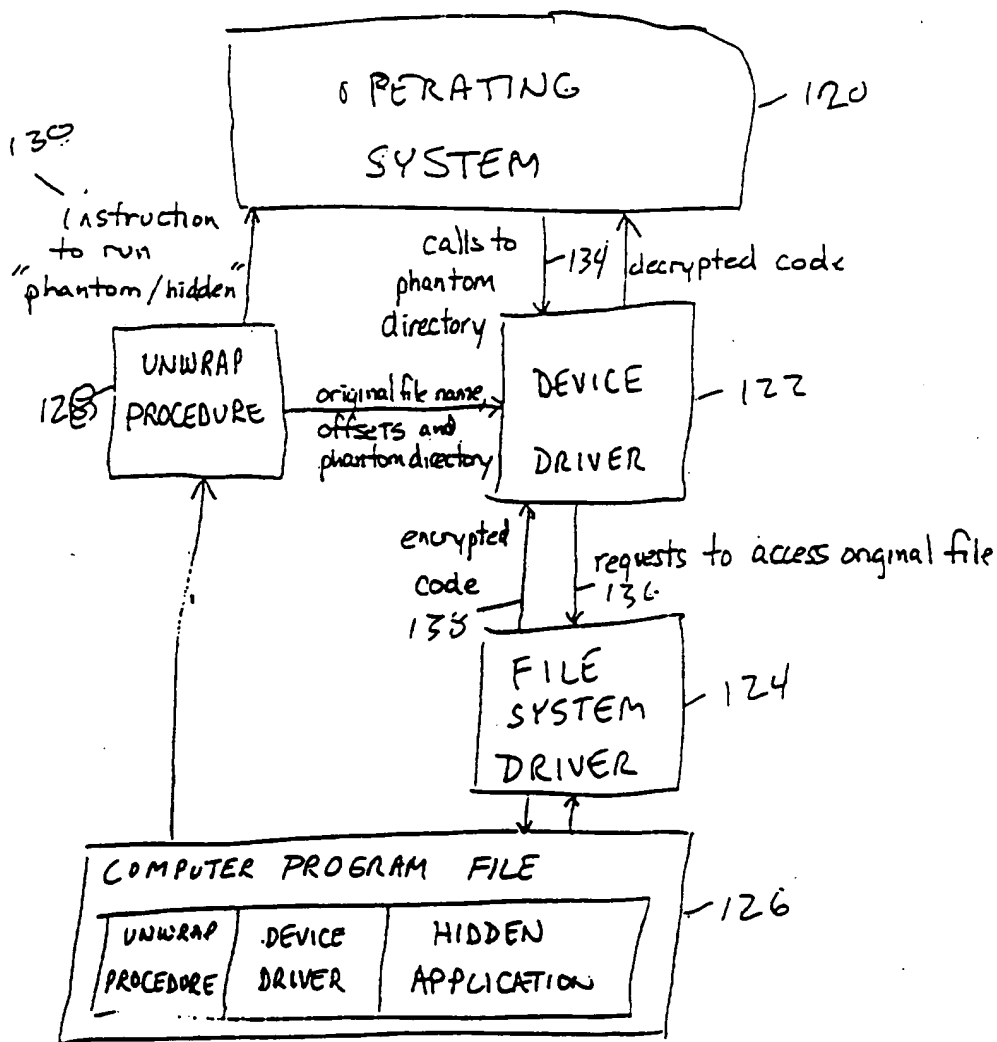 OPERATING
SYSTEM
120
130
instruction
to run
"phantom/hidden"
calls to
phantom
directory
134
decrypted code
UNWRAP
PROCEDURE
original file name,
offsets and
phantom directory
DEVICE
DRIVER
122
encrypted
code
138
requests to access original file
136
FILE
SYSTEM
DRIVER
124
COMPUTER PROGRAM FILE
126
UNWRAP
PROCEDORE
DEVICE
DRIVER
HIDDEN
APPLICATION